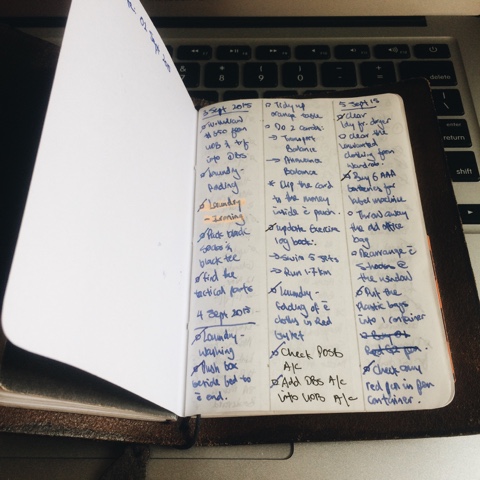 3 Sept 2015
Withdraw
$ 50 from
UOB & t/f
into DBS
Laundry-
folding
Laundry
- Ironing
Pack black
socks &
black tee
Find the
tactical pants
4 Sept 2015
Laundry-
washing
Push box
beside bed to
ē end.
Tidy up
orange table
Do 2 cards:
→ Transport
Balance
→
Balance
* Clip the card
to the money
inside ē pouch.
update Exercise
log book:
→ Swim 5 sets
→ Run 1.7km
Laundry-
folding of ē
clothes in Red
basket
Check POSB
A/c
Add DBS A/c
into UOB A/c
5 Sept 15
Clear
dryer
clear the
unwanted
clothing from
wardrobe.
Buy 6 AAA
batteries for
label machine
Throw away
the old office
bag
Rearrange ē
ē
the window
Put the
plastic bags
into 1 container
Buy
Red pen.
Check any
red pen in pen
container.
delete
enter
return
shift